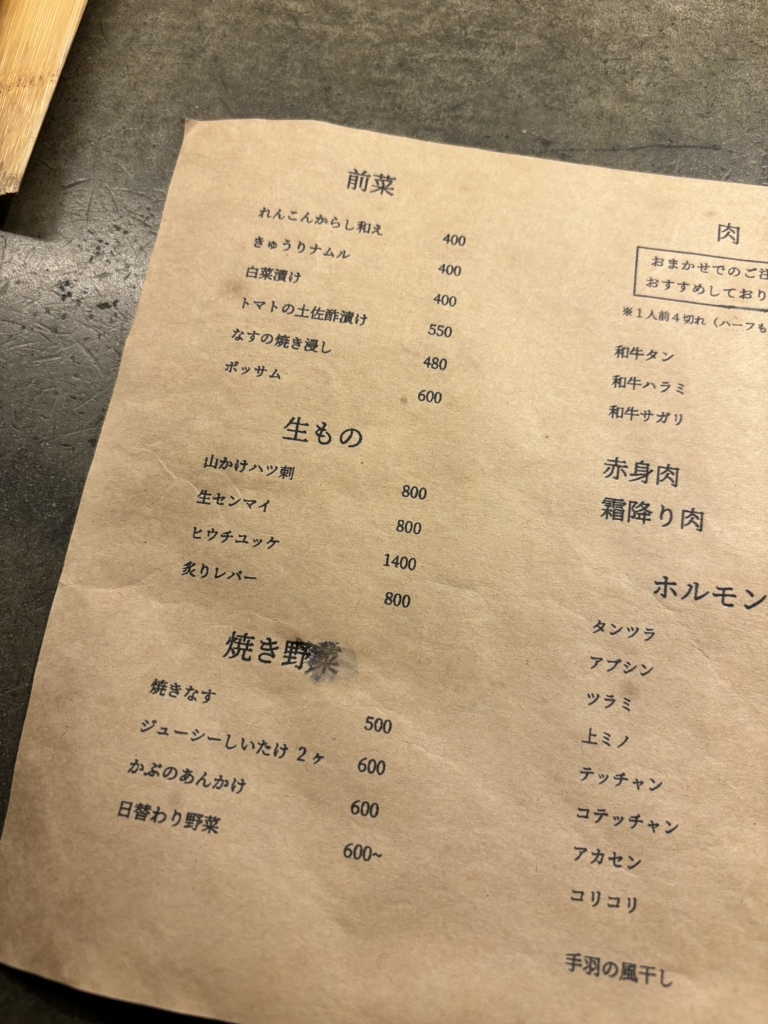 前菜
れんこんからし和え 400
きゅうりナムル 400
白菜漬け 400
トマトの土佐酢漬け 550
なすの焼き浸し 480
ポッサム 600
生もの
山かけハツ刺 800
生センマイ 800
ヒウチユッケ 1400
炙りレバー 800
焼き野菜
焼きなす 500
ジューシーしいたけ 2ヶ 600
かぶのあんかけ 600
日替わり野菜 600~
肉
おまかせでのご注
おすすめしており
※1人前4切れ(ハーフも
和牛タン
和牛ハラミ
和牛サガリ
赤身肉
霜降り肉
ホルモン
タンツラ
アブシン
ツラミ
上ミノ
テッチャン
コテッチャン
アカセン
コリコリ
手羽の風干し